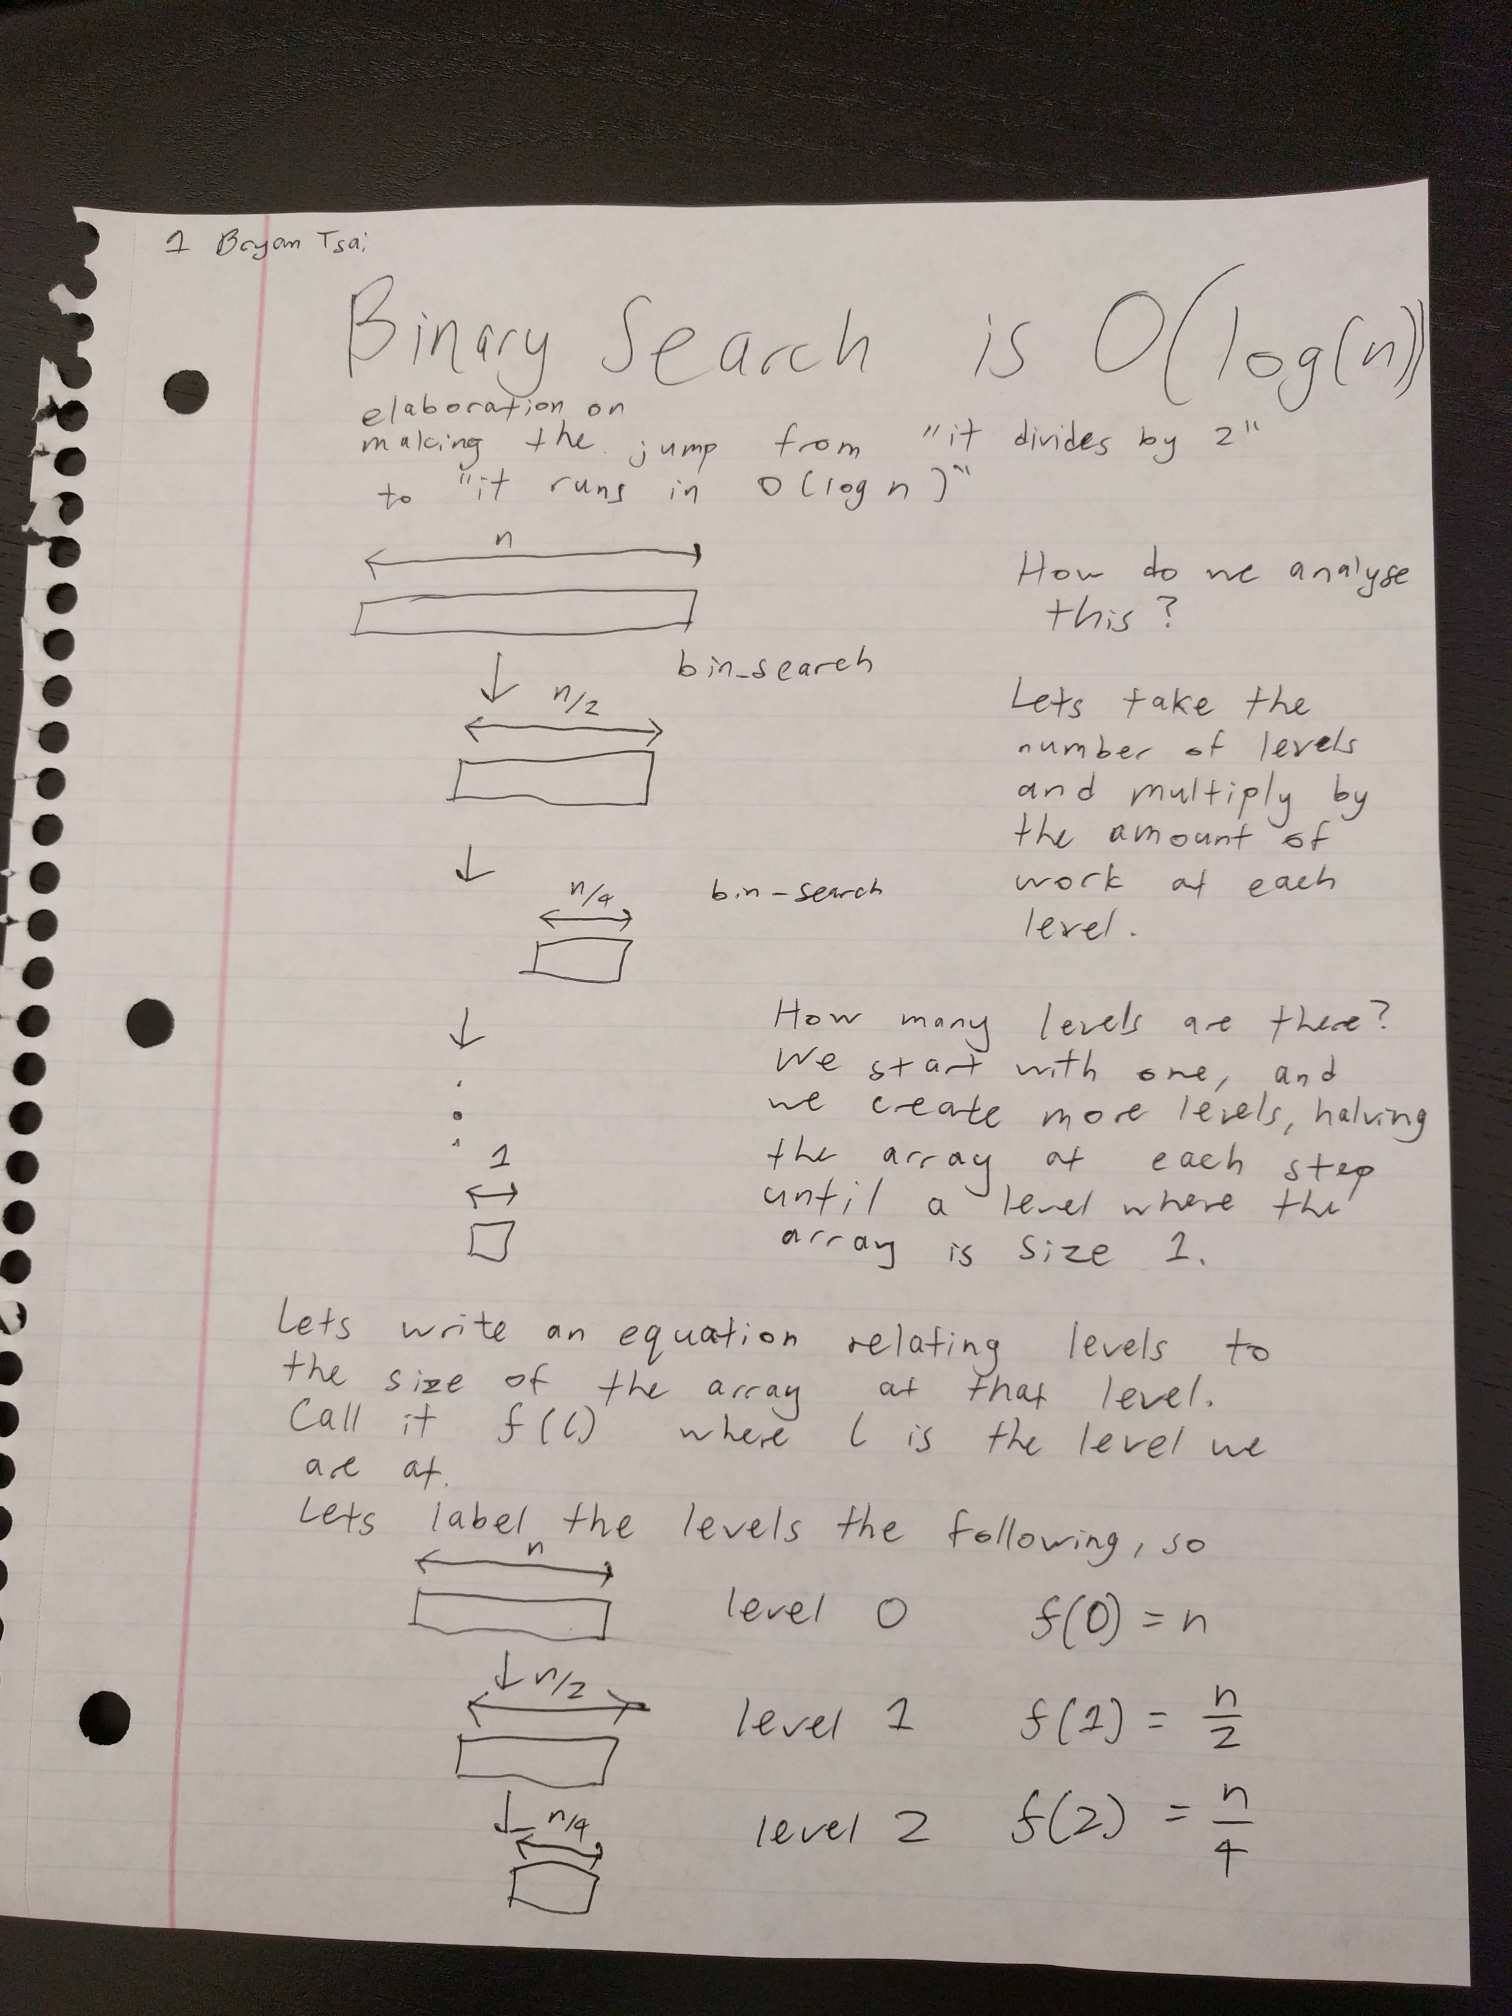 1 Bryan Tsai
Binary Search is O(log(n))
elaboration on
making the jump from "it divides by 2"
to "it runs in O(log n)"
n
bin_search
n/2
n/4
bin-search
1
How do we analyse
this?
Lets take the
number of levels
and multiply by
the amount of
work at each
level.
How many levels are there?
We start with one, and
we create more levels, halving
the array at each step
until a level where the
array is size 1.
Lets write an equation relating levels to
the size of the array at that level.
Call it f(l) where l is the level we
are at.
Lets label the levels the following, so
n
level 0 f(0) = n
n/2
level 1 f(1) = n/2
n/4
level 2 f(2) = n/4